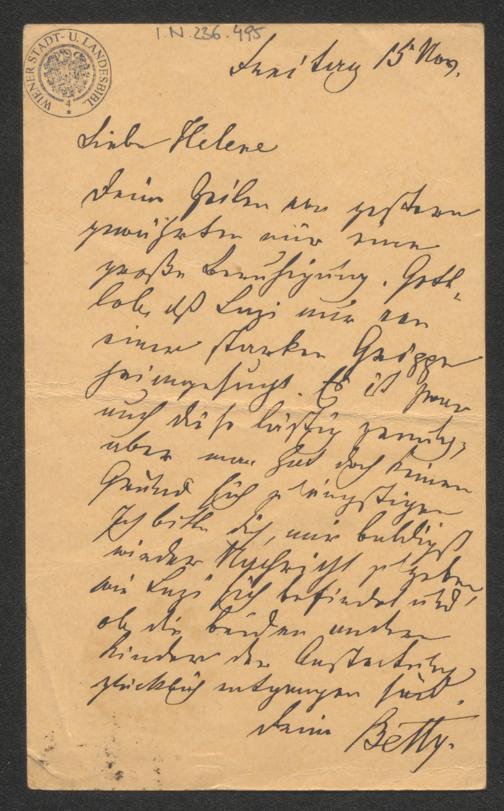 I.N. 236.495
WIENER STADT- U. LANDESBIBL.
Freitag 15 Nov.
Liebe Helene
Deine Zeilen von gestern
gewährten mir eine
große Beruhigung. Gott-
lob, daß Luzi nur von
einer starken Grippe
heimgesucht. Es ist zwar
auch diese lästig genug,
aber man hat doch keinen
Grund sich zu ängstigen
Ich bitte dich, mir baldigst
wieder Nachricht zu geben,
wie Luzi sich befindet und
ob die beiden andern
Kinder der Ansteckung
glücklich entgangen sind.
Deine Betty.